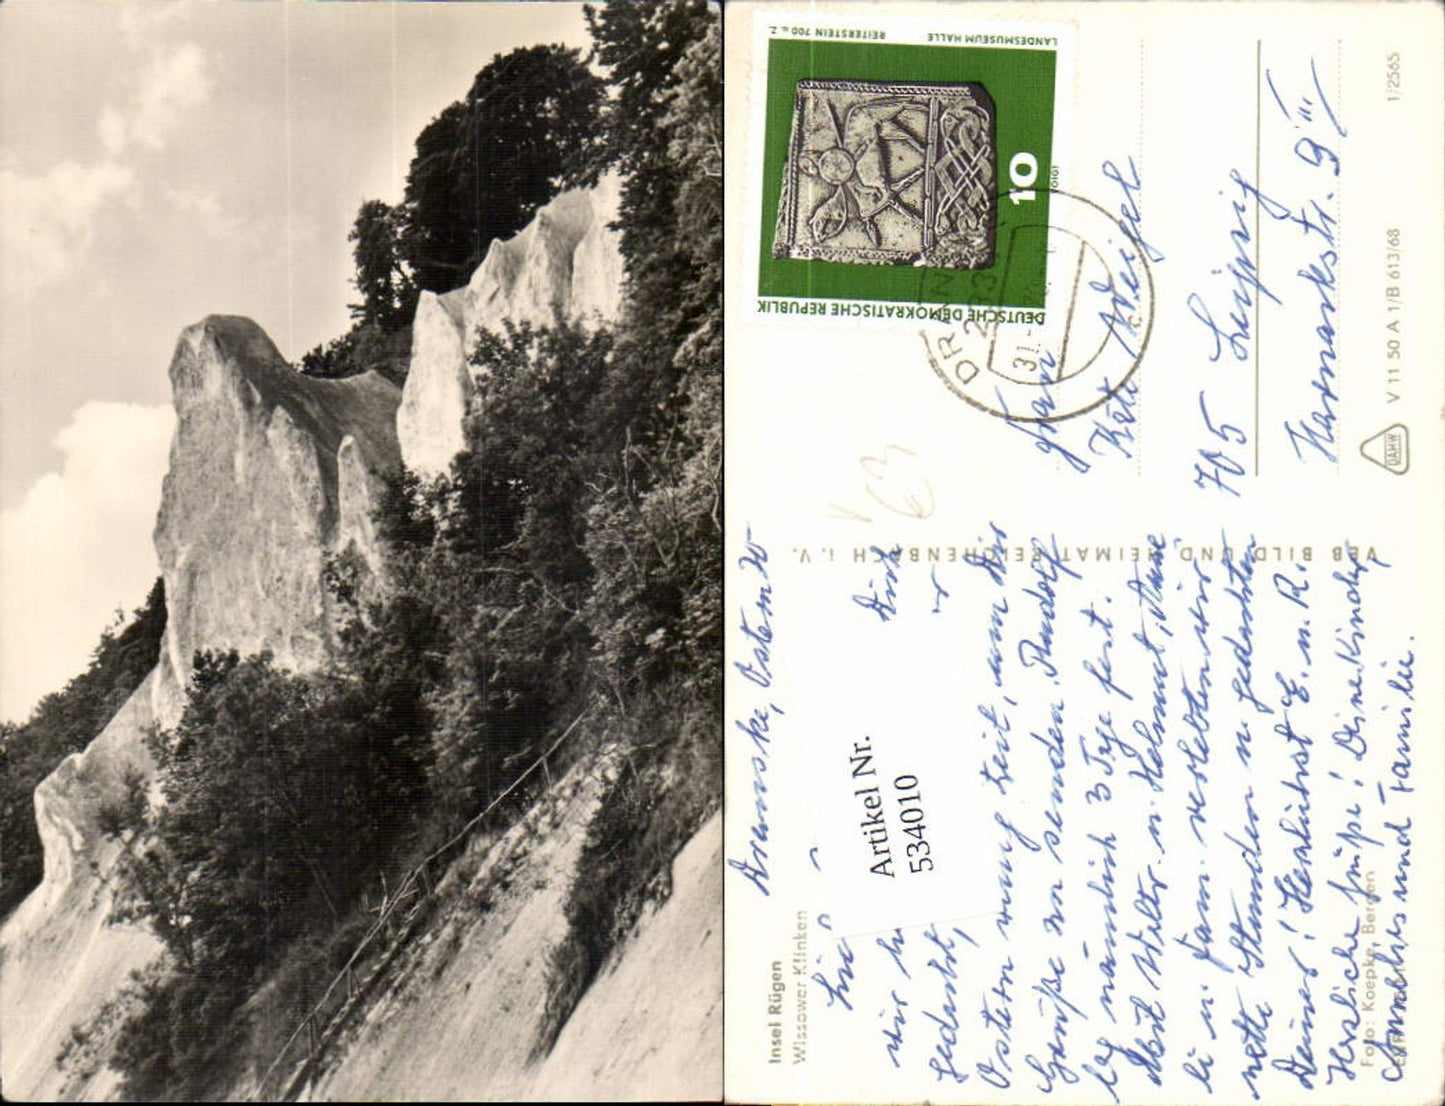 LANDESMUSEUM HALLE REITERSTEIN 700 u. Z.
10
VOIGT
DEUTSCHE DEMOKRATISCHE REPUBLIK
Frau
Käte Weigel
705 Leipzig
Harnackstr. 9 III
1/2565
V 11 50 A 1/B 613/68
DAHW
VEB BILD UND HEIMAT REICHENBACH i. V.
Insel Rügen
Wissower Klinken
Foto: Koepke, Bergen
Artikel Nr.
534010
Dranske, Ostern
Dich
wir
gedacht,
Ostern wenig Zeit, um Dir
Grüße zu senden. Rudolf
lag nämlich 3 Tage fest.
Mit Walter u. Helmut,
u. Fam. verlebten wir
nette Stunden u. gedachten
Deiner! Herzlichst E. u. R.
Herzliche Grüße! Deine Kinder,
und Familie.